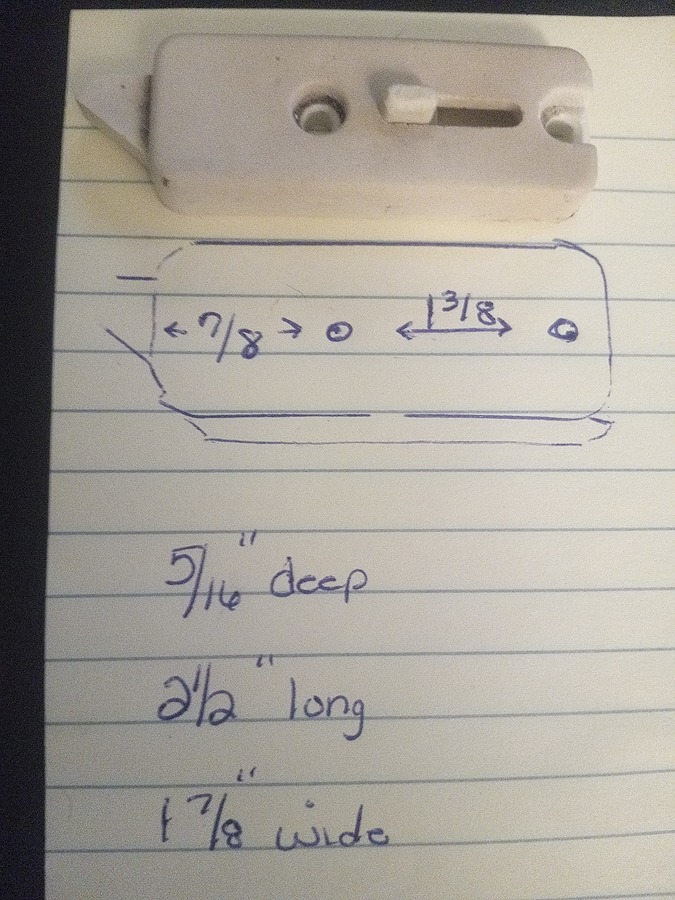 7/8 1 3/8
5/16" deep
2 1/2" long
1 7/8" wide